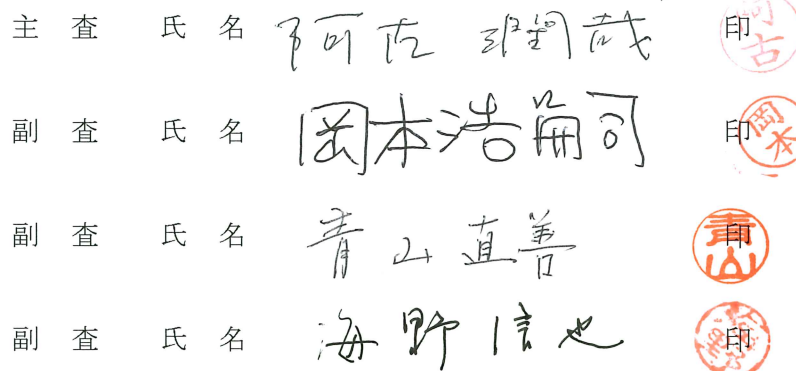 主査 氏名 阿古潤哉 印
副査 氏名 岡本浩嗣 印
副査 氏名 青山直善 印
副査 氏名 海野信也 印